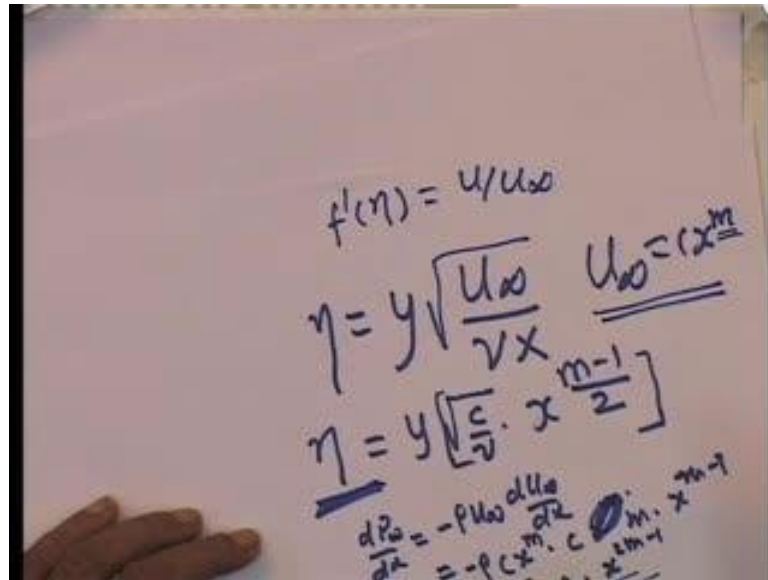 f'(η) = u/u∞
η = y√(U∞/νx) U∞ = Cx^m
η = y[√(c/ν) · x^((m-1)/2)]
dP∞/dx = -ρU∞ dU∞/dx
= -ρCx^m · c m · x^(m-1)
x^(2m-1)